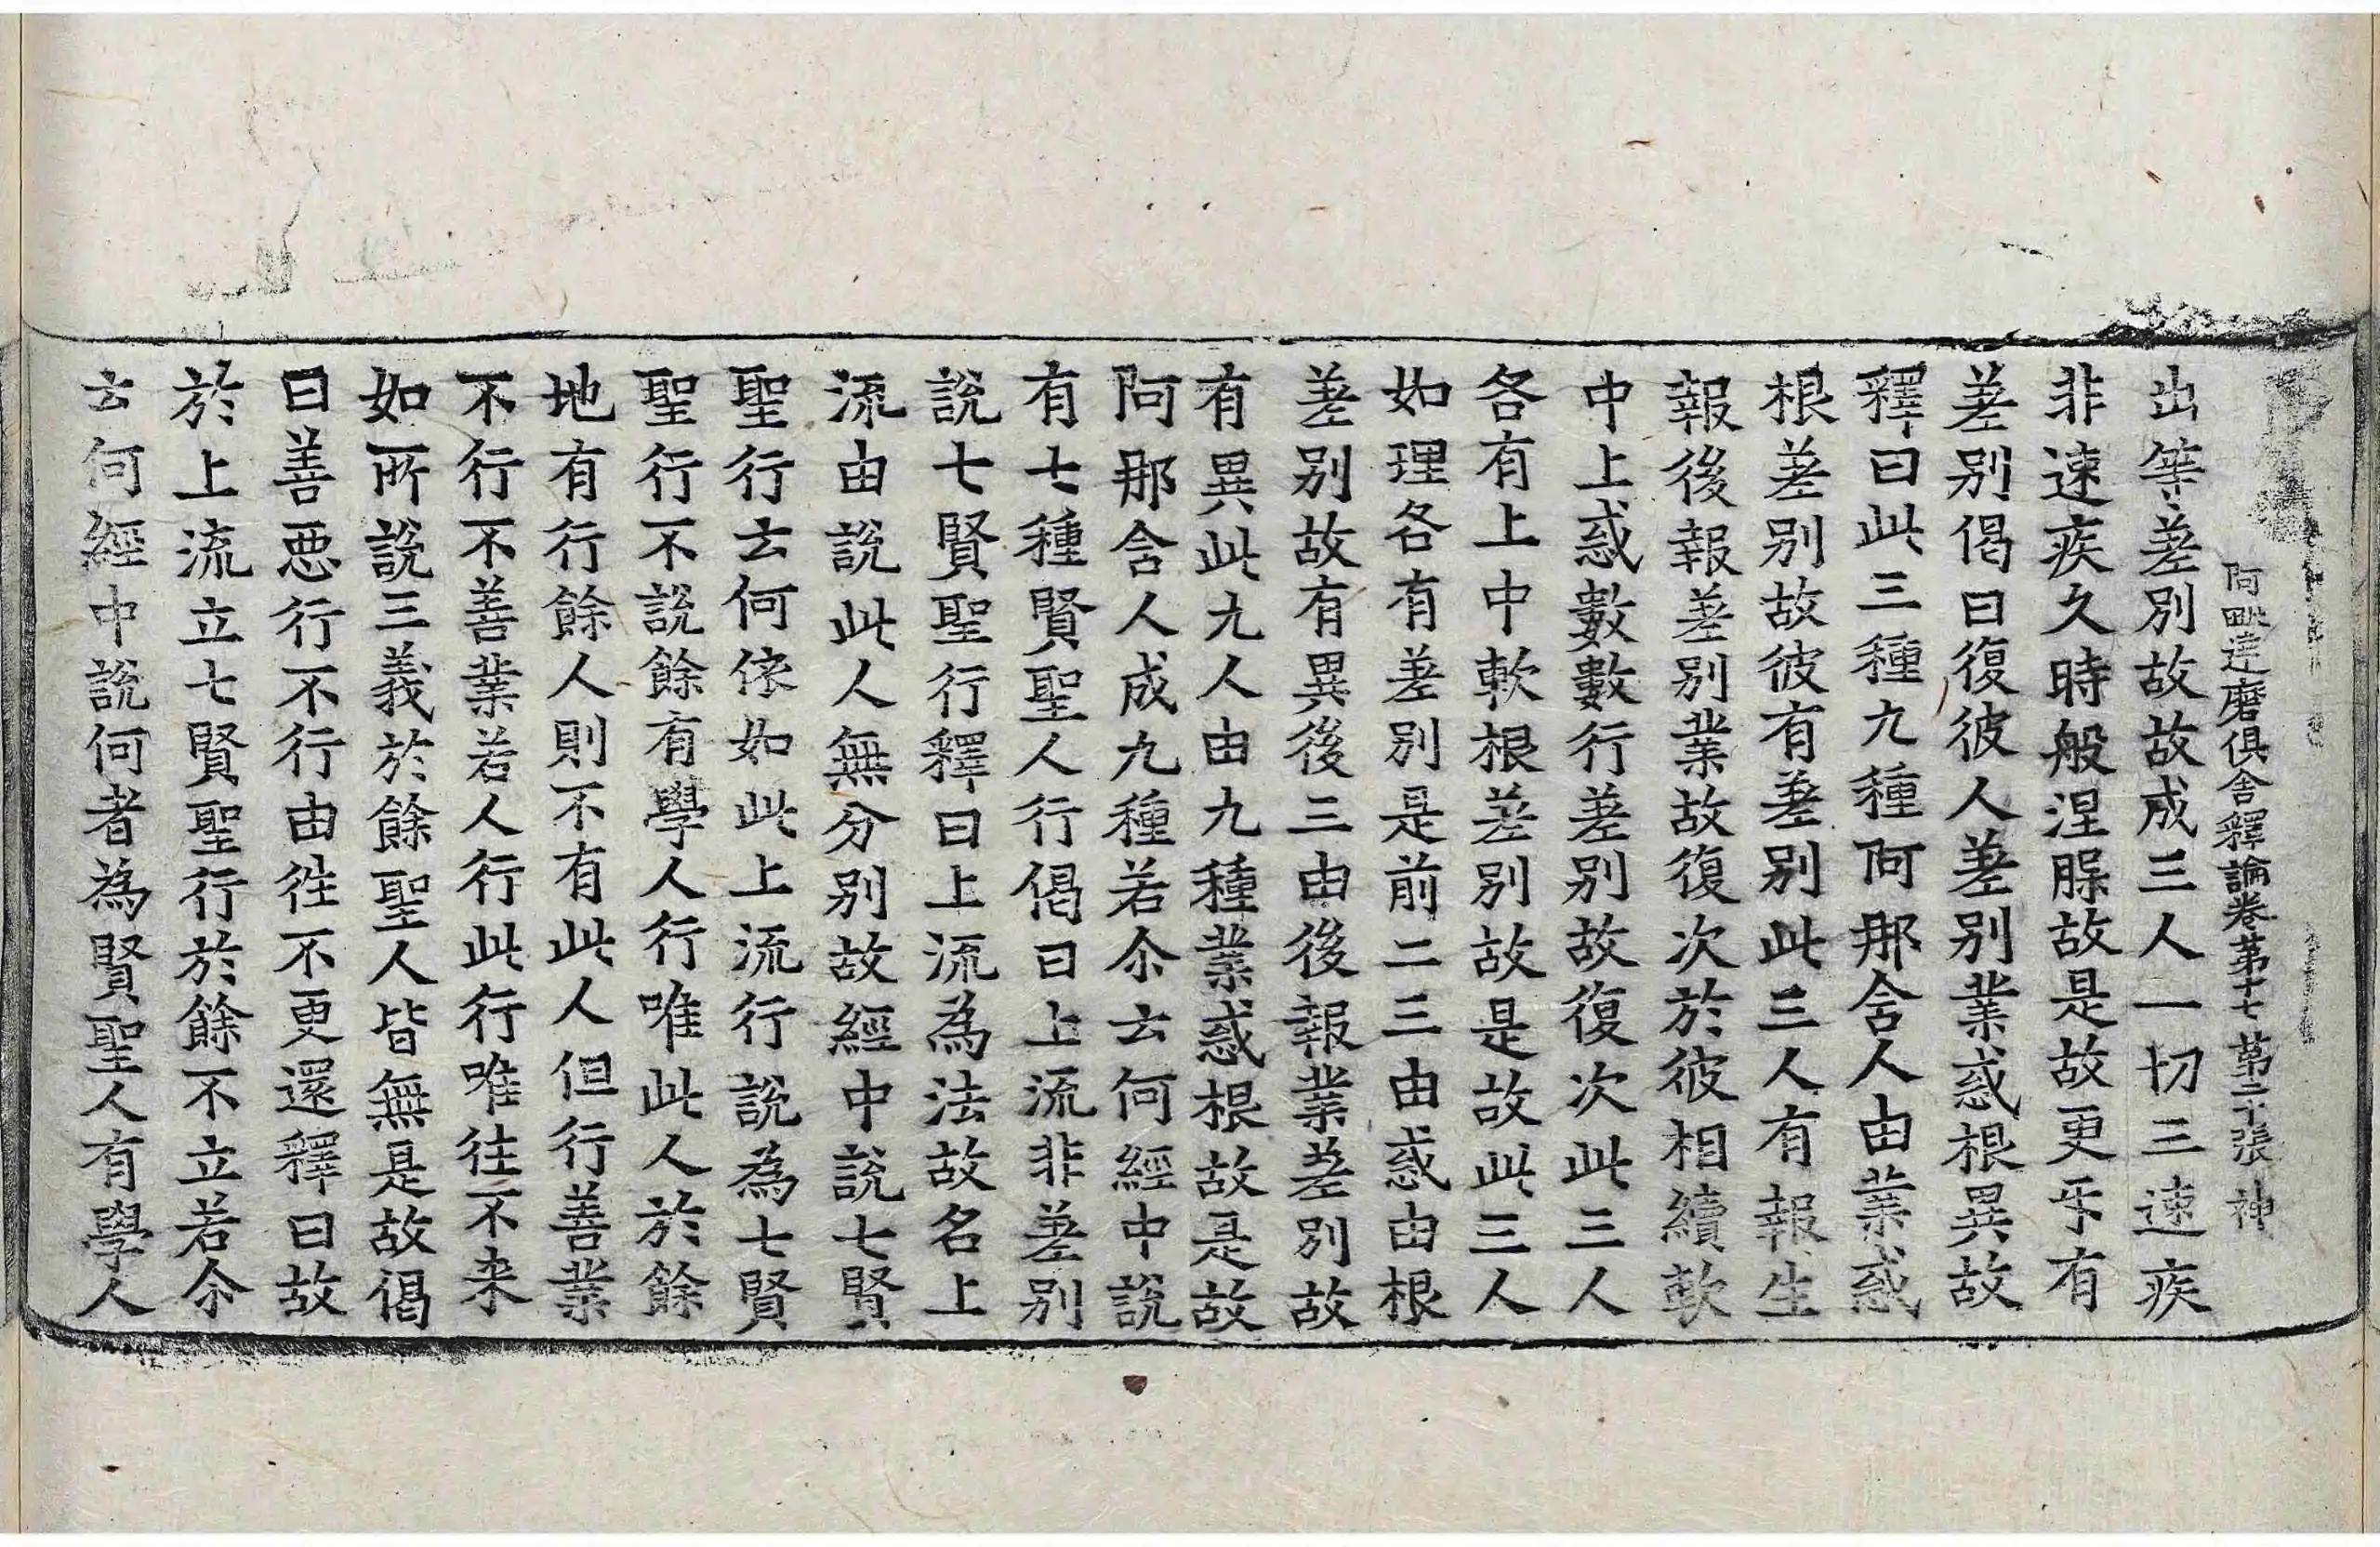 阿毗達磨俱舍釋論卷第十七 第二十張 神
出等差別故故成三人一切三速疾
非速疾久時般涅脲故是故更㸦有
差别偈曰復彼人差别業惑根異故
釋曰此三種九種阿那含人由業惑
根差别故彼有差别此三人有報生
報後報差别業故復次於彼相續軟
中上惑數數行差别故復次此三人
各有上中軟根差别故是故此三人
如理各有差别是前二三由惑由根
差别故有異後三由後報業差别故
有異此九人由九種業惑根故是故
阿那含人成九種若尒云何經中說
有七種賢聖人行偈曰上流非差别
說七賢聖行釋曰上流為法故名上
流由說此人無分别故經中說七賢
聖行云何依如此上流行說為七賢
聖行不說餘有學人行唯此人於餘
地有行餘人則不有此人但行善業
不行不善業若人行此行唯往不来
如所說三義於餘聖人皆無是故偈
曰善惡行不行由徃不更還釋曰故
於上流立七賢聖行於餘不立若尒
云何經中說何者為賢聖人有學人